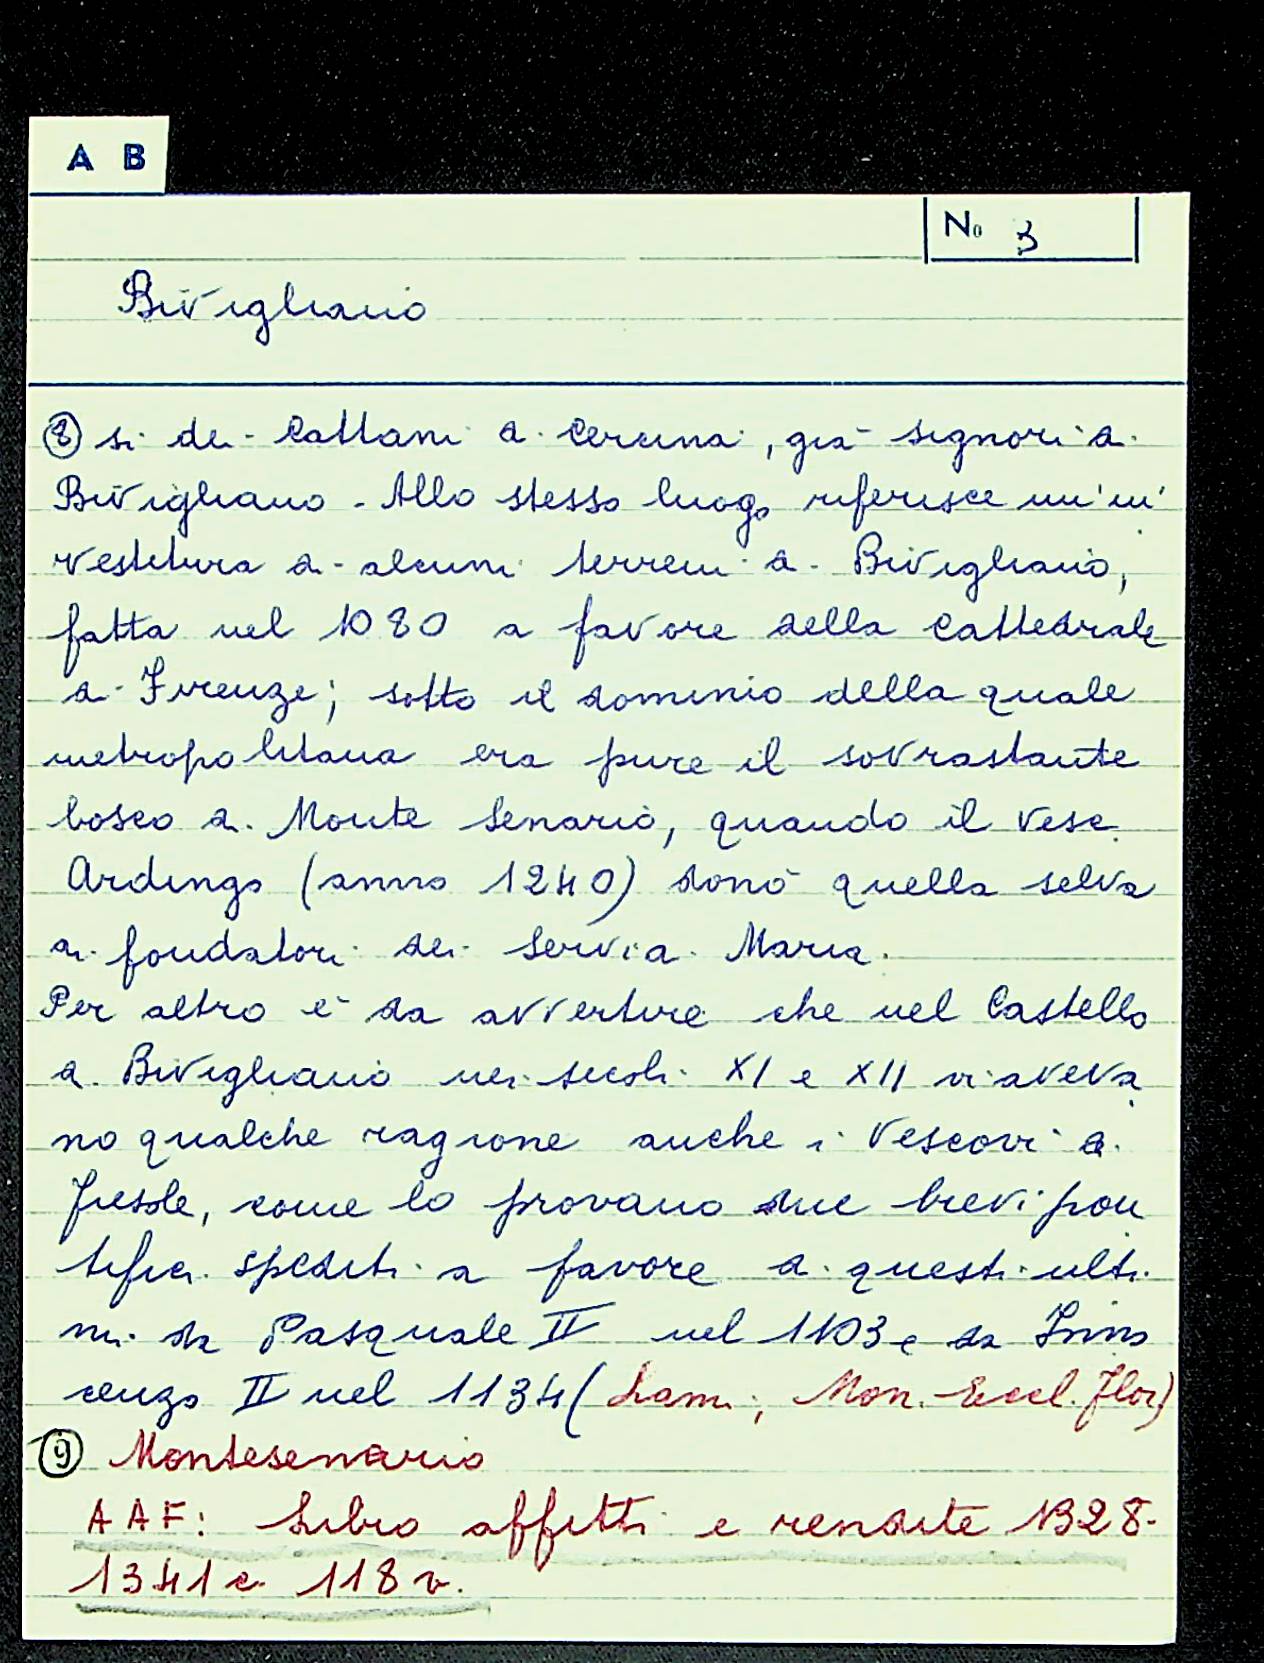 A B
No 3
Bivigliano
⑧ si dei Cattani di Cercina, già signori di
Bivigliano. Allo stesso luogo riferisce un'in
vestitura di alcuni terreni di Bivigliano,
fatta nel 1080 a favore della cattedrale
di Firenze; sotto il dominio della quale
metropolitana era pure il sovrastante
bosco di Monte Senario, quando il Vesc.
Ardingo (anno 1240) donò quella selva
ai fondatori dei Servi di Maria.
Per altro è da avvertire che nel Castello
di Bivigliano nei secoli XI e XII vi aveva
no qualche ragione anche i Vescovi di
Fiesole, come lo provano due brevi pon
tifici spediti a favore di questi ulti
mi da Pasquale II nel 1103 e da Inno
cenzo II nel 1134 (Lami, Mon. Eccl. Flor)
⑨ Montesenario
AAF: Libro affitti e rendite 1328-
1341 c. 118 v.